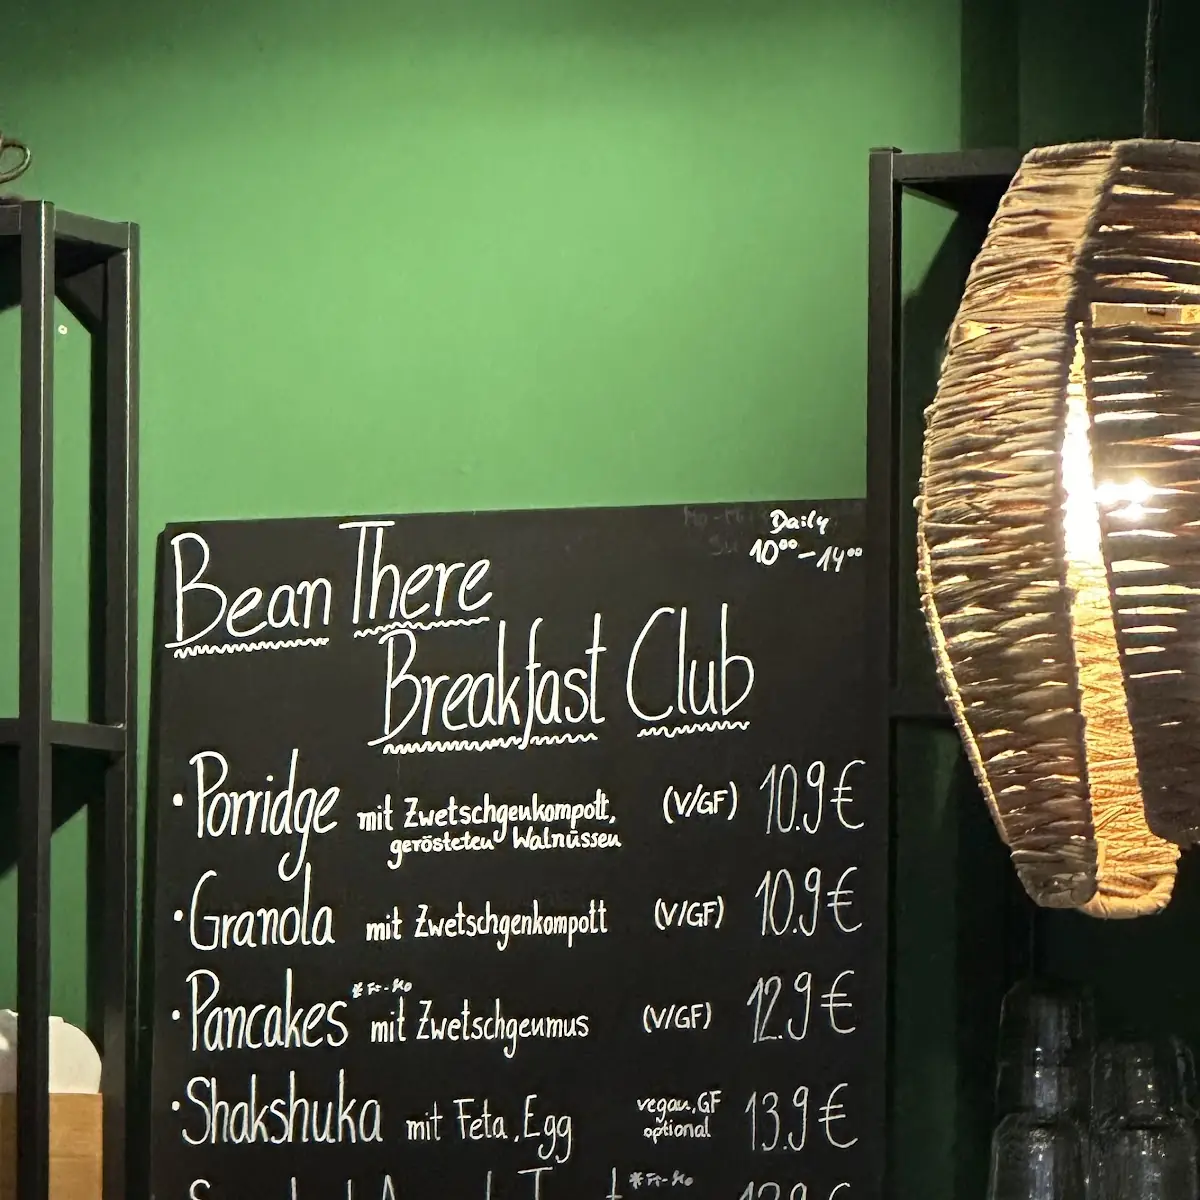 Daily
10⁰⁰-14⁰⁰
Bean There
Breakfast Club
· Porridge mit Zwetschgenkompott, (V/GF) 10.9€
gerösteten Walnüssen
· Granola mit Zwetschgenkompott (V/GF) 10.9€
· Pancakes *Fr-Mo mit Zwetschgenmus (V/GF) 12.9€
· Shakshuka mit Feta, Egg vegan, GF optional 13.9€
*Fr-Mo